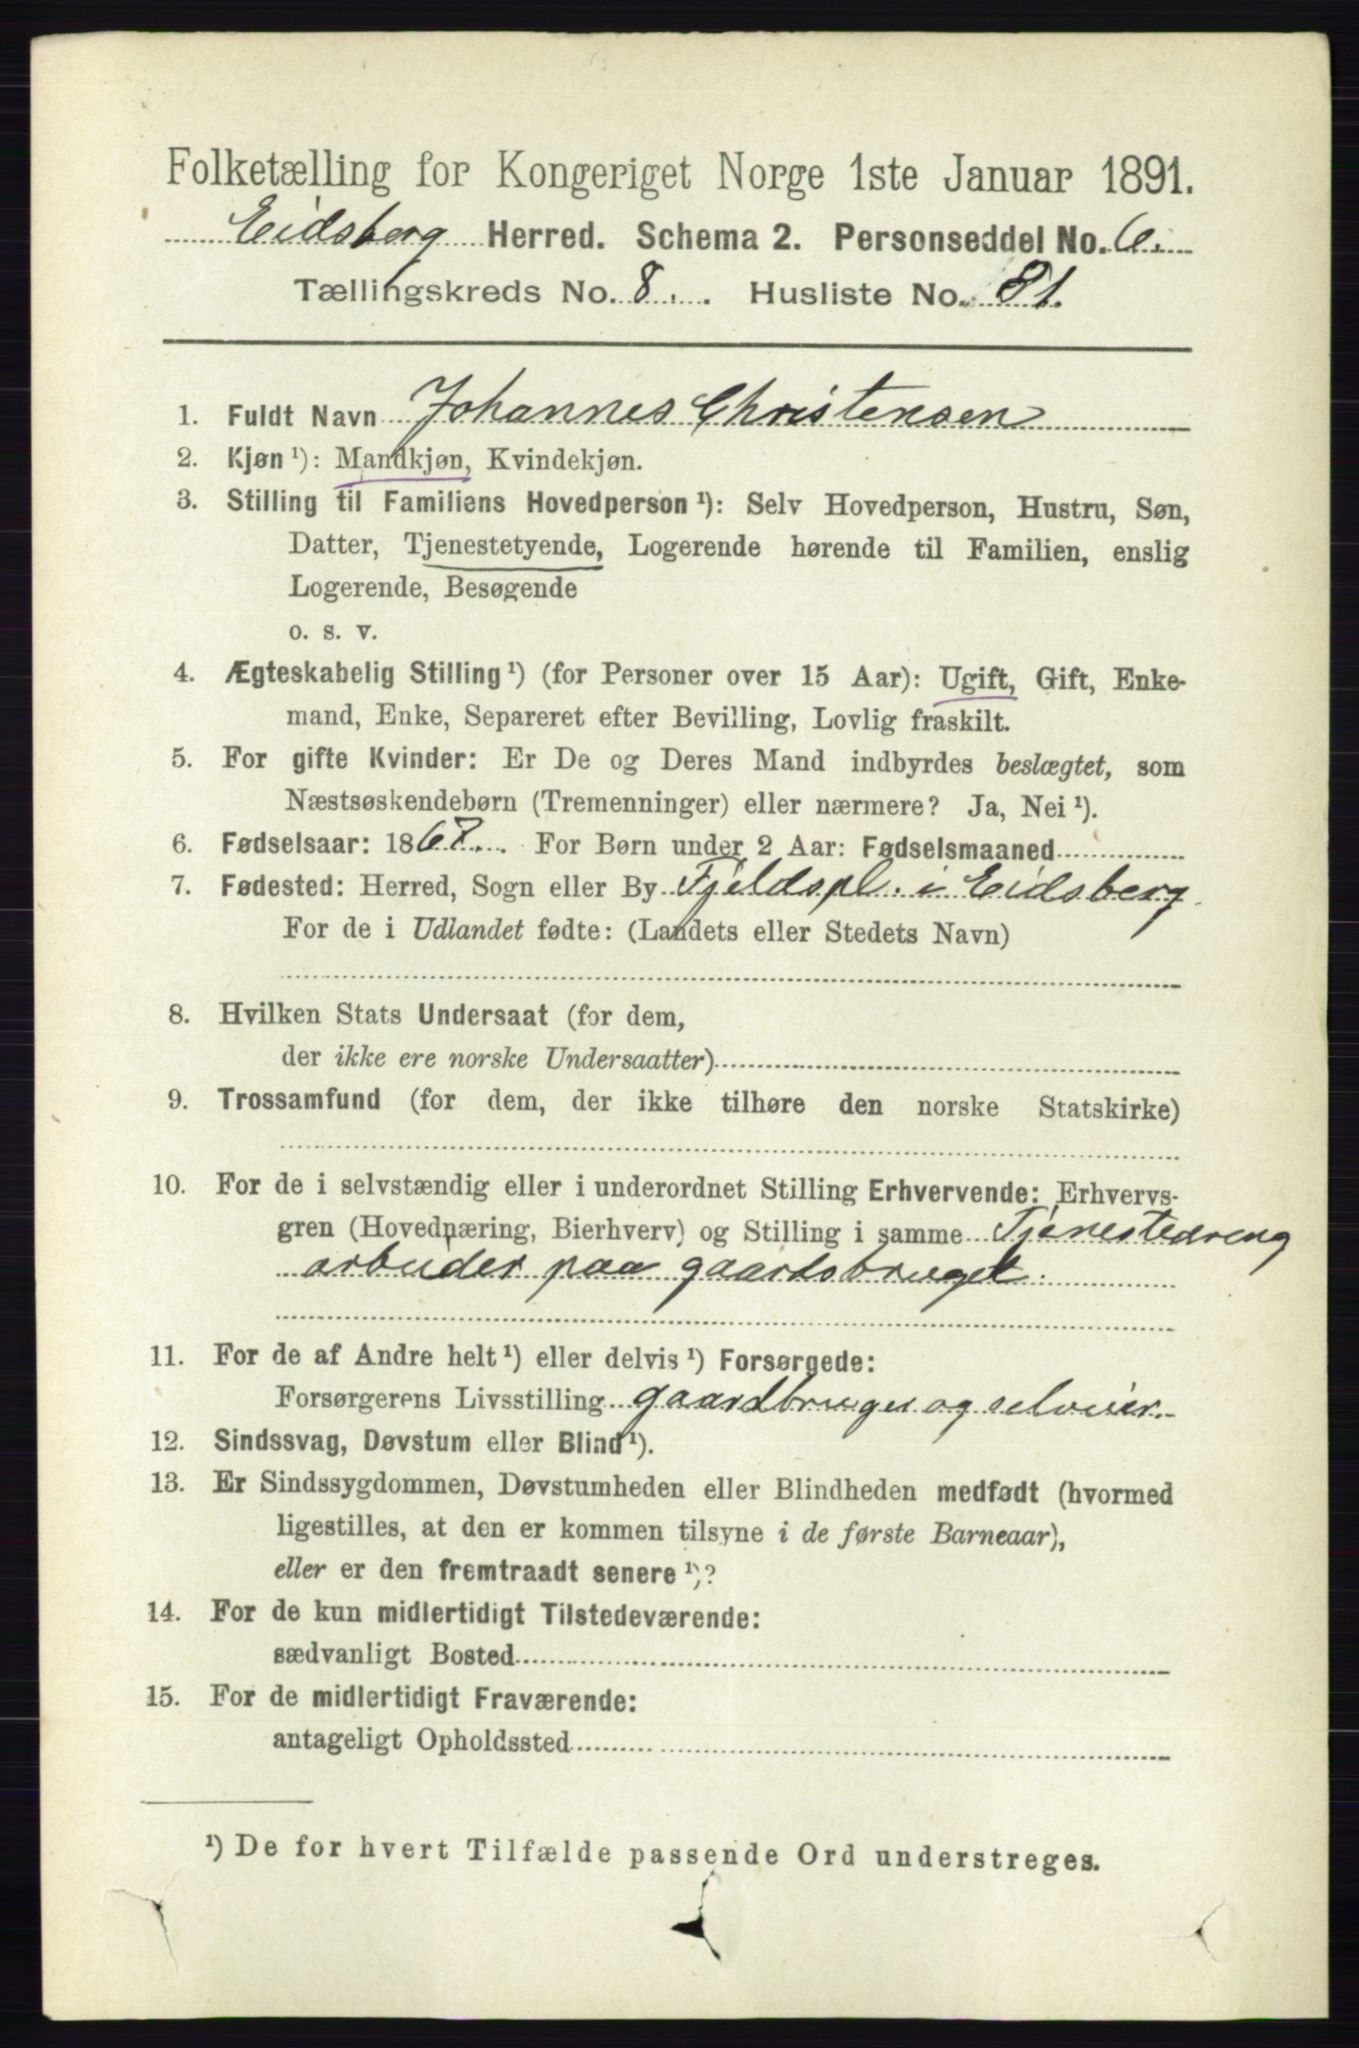 Folketælling for Kongeriget Norge 1ste Januar 1891.
Eidsberg Herred. Schema 2. Personseddel No. 6.
Tællingskreds No. 8. Husliste No. 81.
1. Fuldt Navn Johannes Christensen
2. Kjøn ¹): Mandkjøn, Kvindekjøn.
3. Stilling til Familiens Hovedperson ¹): Selv Hovedperson, Hustru, Søn,
Datter, Tjenestetyende, Logerende hørende til Familien, enslig
Logerende, Besøgende
o. s. v.
4. Ægteskabelig Stilling ¹) (for Personer over 15 Aar): Ugift, Gift, Enke-
mand, Enke, Separeret efter Bevilling, Lovlig fraskilt.
5. For gifte Kvinder: Er De og Deres Mand indbyrdes beslægtet, som
Næstsøskendebørn (Tremenninger) eller nærmere? Ja, Nei ¹).
6. Fødselsaar: 1867. For Børn under 2 Aar: Fødselsmaaned
7. Fødested: Herred, Sogn eller By Fjeldspl. i Eidsberg
For de i Udlandet fødte: (Landets eller Stedets Navn)
8. Hvilken Stats Undersaat (for dem,
der ikke ere norske Undersaatter)
9. Trossamfund (for dem, der ikke tilhøre den norske Statskirke)
10. For de i selvstændig eller i underordnet Stilling Erhvervende: Erhvervs-
gren (Hovednæring, Bierhverv) og Stilling i samme Tjenestedreng
arbeider paa gaardsbruget.
11. For de af Andre helt ¹) eller delvis ¹) Forsørgede:
Forsørgerens Livsstilling gaardbruger og selveier.
12. Sindssvag, Døvstum eller Blind ¹).
13. Er Sindssygdommen, Døvstumheden eller Blindheden medfødt (hvormed
ligestilles, at den er kommen tilsyne i de første Barneaar),
eller er den fremtraadt senere ¹)?
14. For de kun midlertidigt Tilstedeværende:
sædvanligt Bosted
15. For de midlertidigt Fraværende:
antageligt Opholdssted
¹) De for hvert Tilfælde passende Ord understreges.